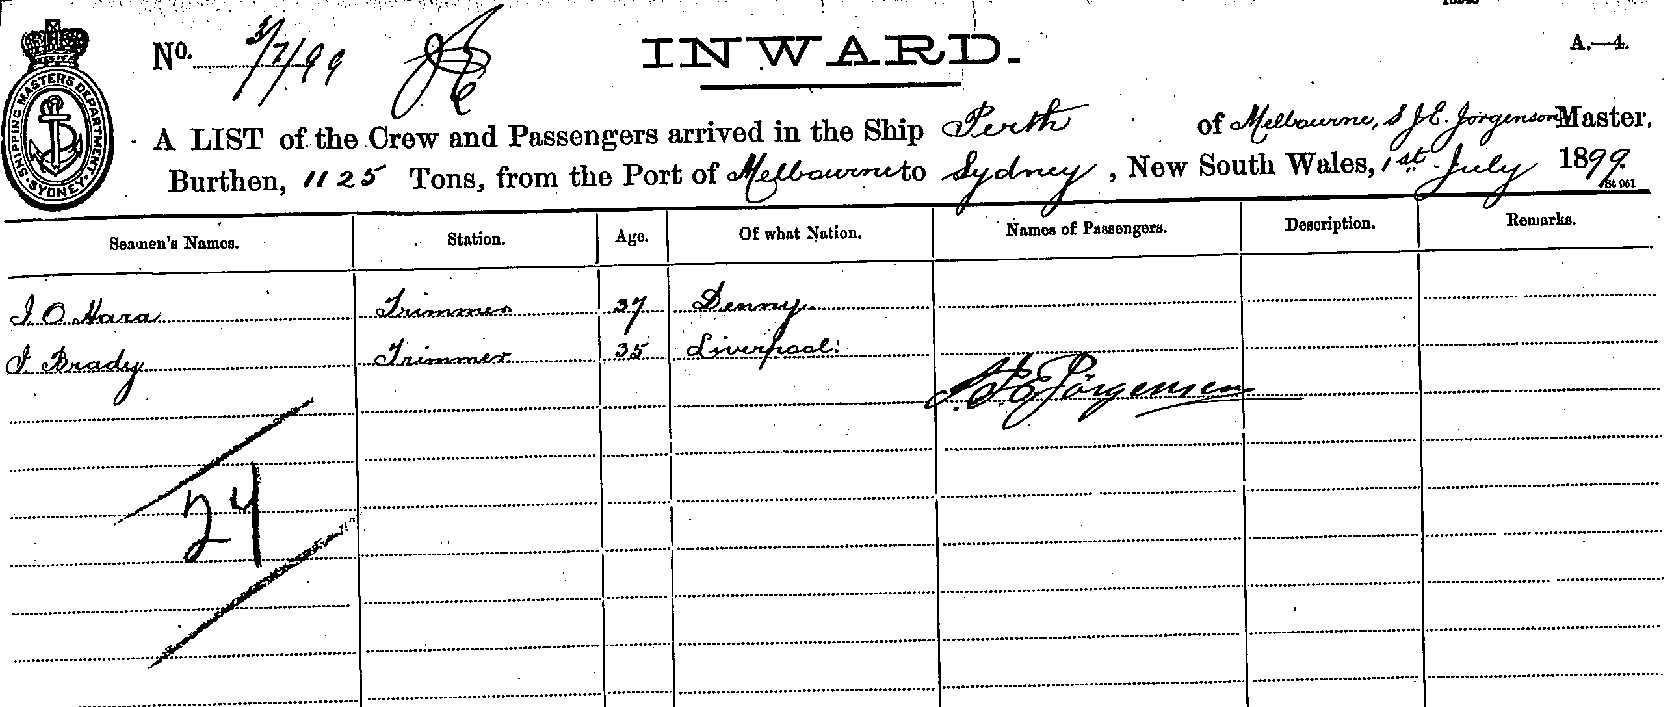 No. 3/7/99 INWARD. A.—4.
SHIPPING MASTERS DEPARTMENT. SYDNEY
A LIST of the Crew and Passengers arrived in the Ship Perth of Melbourne, S J. E. Jorgenson Master,
Burthen, 1125 Tons, from the Port of Melbourne to Sydney, New South Wales, 1st July 1899.
Seamen's Names. Station. Age. Of what Nation. Names of Passengers. Description. Remarks.
J. O Hara Trimmer 37 Denny
J. Brady Trimmer 35 Liverpool
S. J. E Jörgensen
24